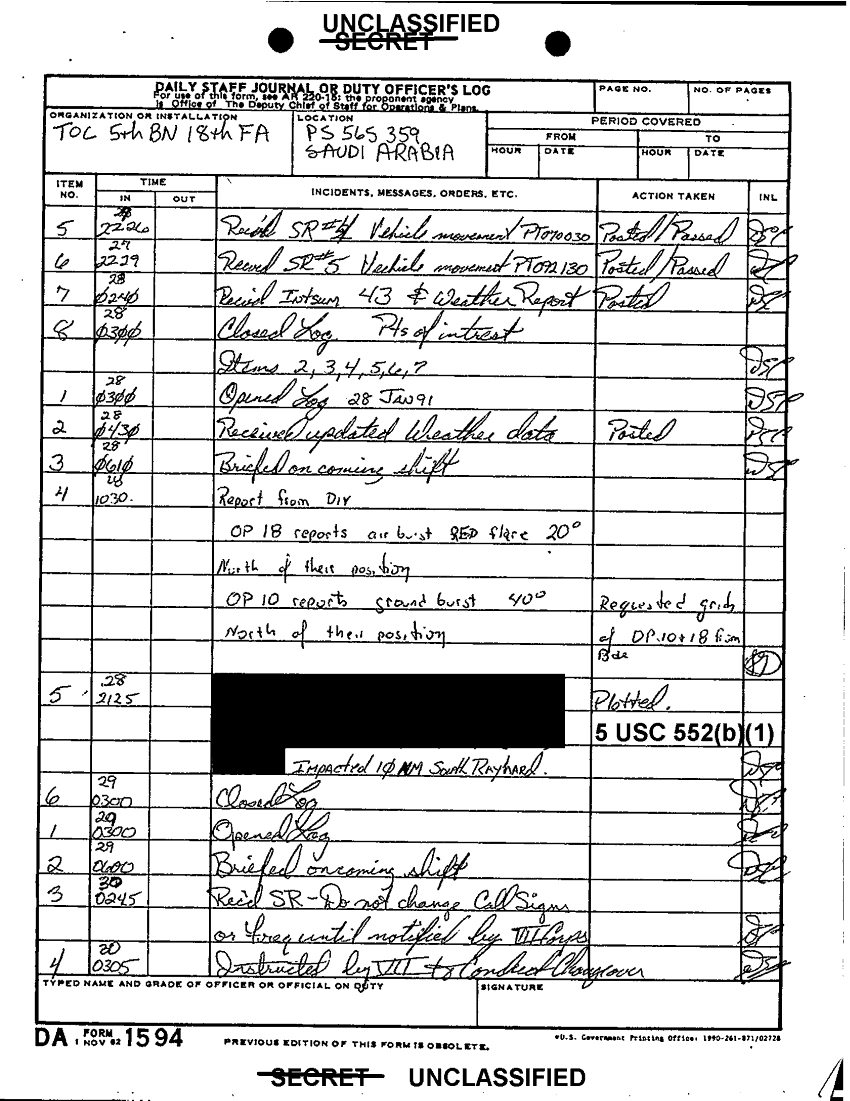 UNCLASSIFIED
SECRET
DAILY STAFF JOURNAL OR DUTY OFFICER'S LOG
For use of this form, see AR 220-15; the proponent agency
is Office of The Deputy Chief of Staff for Operations & Plans.
PAGE NO.
NO. OF PAGES
ORGANIZATION OR INSTALLATION
TOC 5th BN 18th FA
LOCATION
PS 565 359
SAUDI ARABIA
PERIOD COVERED
FROM TO
HOUR DATE HOUR DATE
ITEM NO. TIME INCIDENTS, MESSAGES, ORDERS, ETC. ACTION TAKEN INL
IN OUT
5 2226 Rec'd SR #4 Vehicle movement PT070030 Posted/Passed
27
6 2229 Recvd SR #5 Vechicle movement PT092130 Posted/Passed
28
7 0240 Rec'id Intsum 43 & Weather Report Posted
28
8 0300 Closed Log Pts of intrest
Items 2, 3, 4, 5, 6, 7
28
1 0300 Opened Log 28 JAN 91
28
2 0430 Received updated Weather data Posted
28
3 0610 Briefed on coming shift
28
4 1030. Report from DIV
OP 18 reports air burst RED flare 20°
North of their position
OP 10 reports ground burst 40° Requested grids
North of their position of OP.10+18 from
Bde
28
5 2125 Plotted.
5 USC 552(b)(1)
Impacted 10 NM South Rayhard.
29
6 0300 Closed Log
29
1 0300 Opened Log
29
2 0600 Briefed oncoming shift
30
3 0245 Rec'd SR - Do not change Call Signs
or freq until notified by VII Corps
30
4 0305 Instructed by VII to Conduct Changeover
TYPED NAME AND GRADE OF OFFICER OR OFFICIAL ON DUTY
SIGNATURE
DA FORM 1594
1 NOV 62
PREVIOUS EDITION OF THIS FORM IS OBSOLETE.
*U.S. Government Printing Office: 1990-261-871/02728
SECRET UNCLASSIFIED